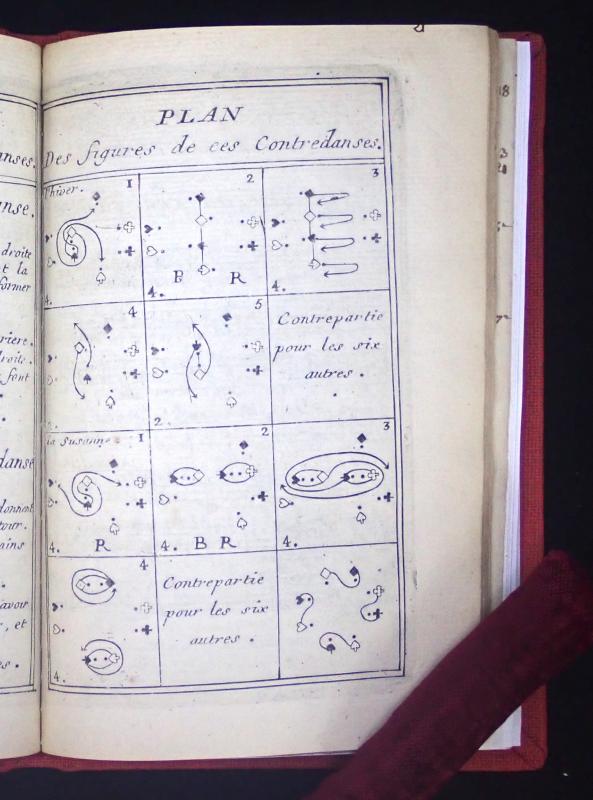 PLAN
Des figures de ces Contredanses.
l'hiver. 1
2
3
4.
4. B R
4.
4
5
Contrepartie
pour les six
autres.
2.
2.
la Susanne 1
2
3
4. R
4. B R
4.
4
Contrepartie
pour les six
autres.
4.
anses.
nse.
droite
et la
former
riere.
droits.
font
danse
donnent
tour.
ains
avoir
, et
es.